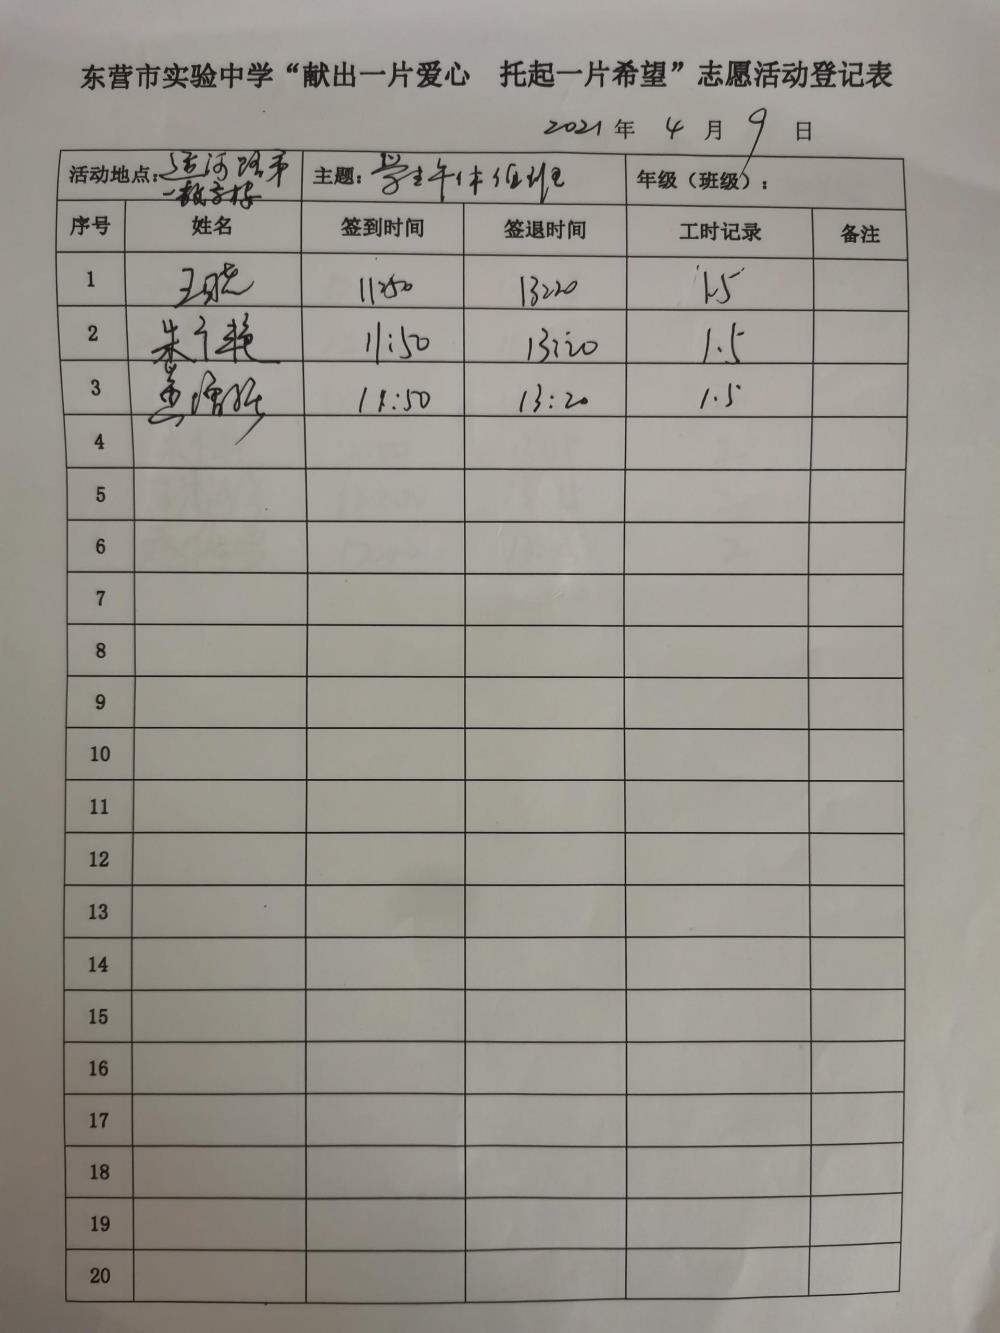 东营市实验中学“献出一片爱心 托起一片希望”志愿活动登记表
2021 年 4 月 9 日
活动地点: 运河路第一教学楼 主题: 学生午休值班 年级（班级）:
序号 姓名 签到时间 签退时间 工时记录 备注
1 王晓 11:50 13:20 1.5
2 朱 艳 11:50 13:20 1.5
3 11:50 13:20 1.5
4
5
6
7
8
9
10
11
12
13
14
15
16
17
18
19
20